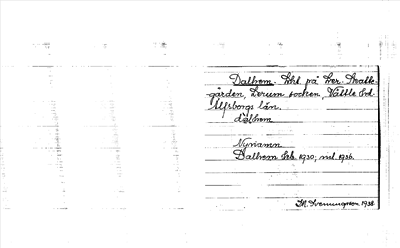 Dalhem. lht på Ler. Skatte-
gården, Lerum socken, Vättle hd
Älfsborgs län.
dàlhem
Nynamn
Dalhem 1930; 1936.
Svenungsson 1938